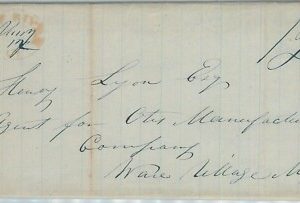 Henry Lyon Esq
Agent for Otis Manufactu
Company
Ware Village M